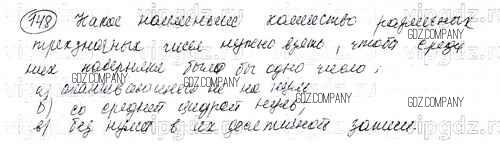 748 Какое наименьшее количество различных
трехзначных чисел нужно взять, чтобы среди
них наверняка было бы одно число:
а) оканчивающееся не на нуль
б) со средней цифрой нуль,
в) без нулей в их десятичной записи
GDZ.COMPANY
GDZ.COMPANY
GDZ.COMPANY
GDZ.COMPANY
GDZ.COMPANY